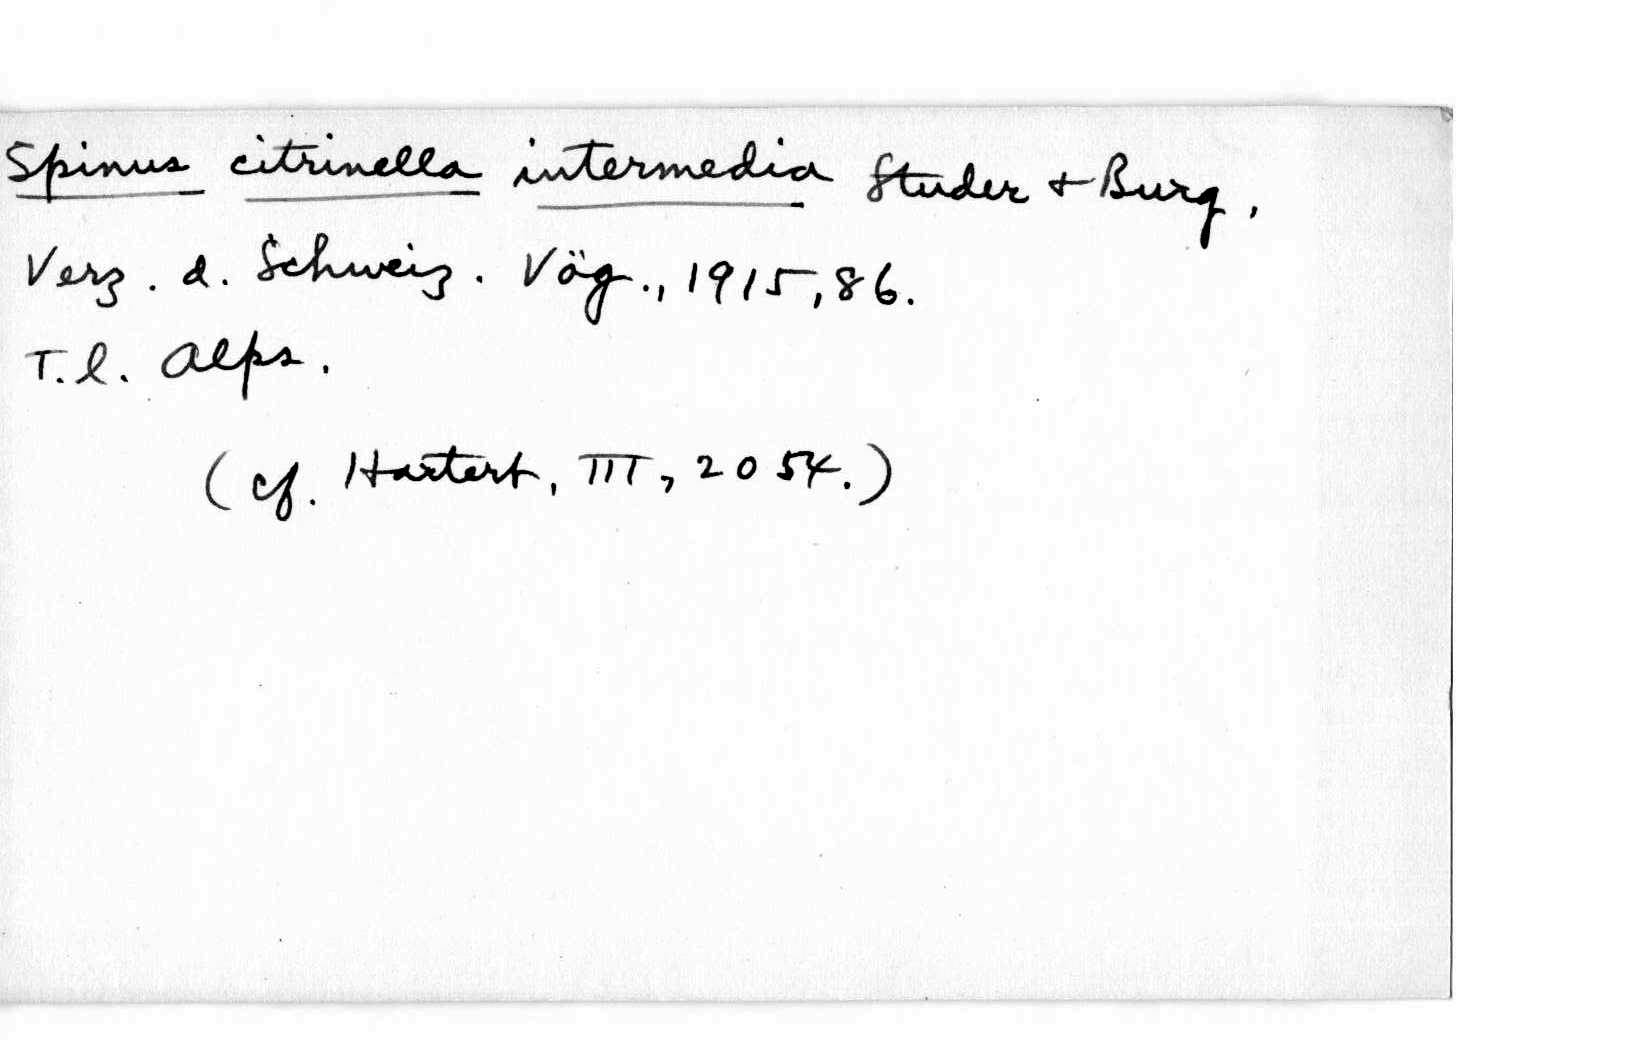 Spinus citrinella intermedia Studer + Burg,
Verz. d. Schweiz. Vög., 1915, 86.
T.l. Alps.
(cf. Hartert, III, 2054.)